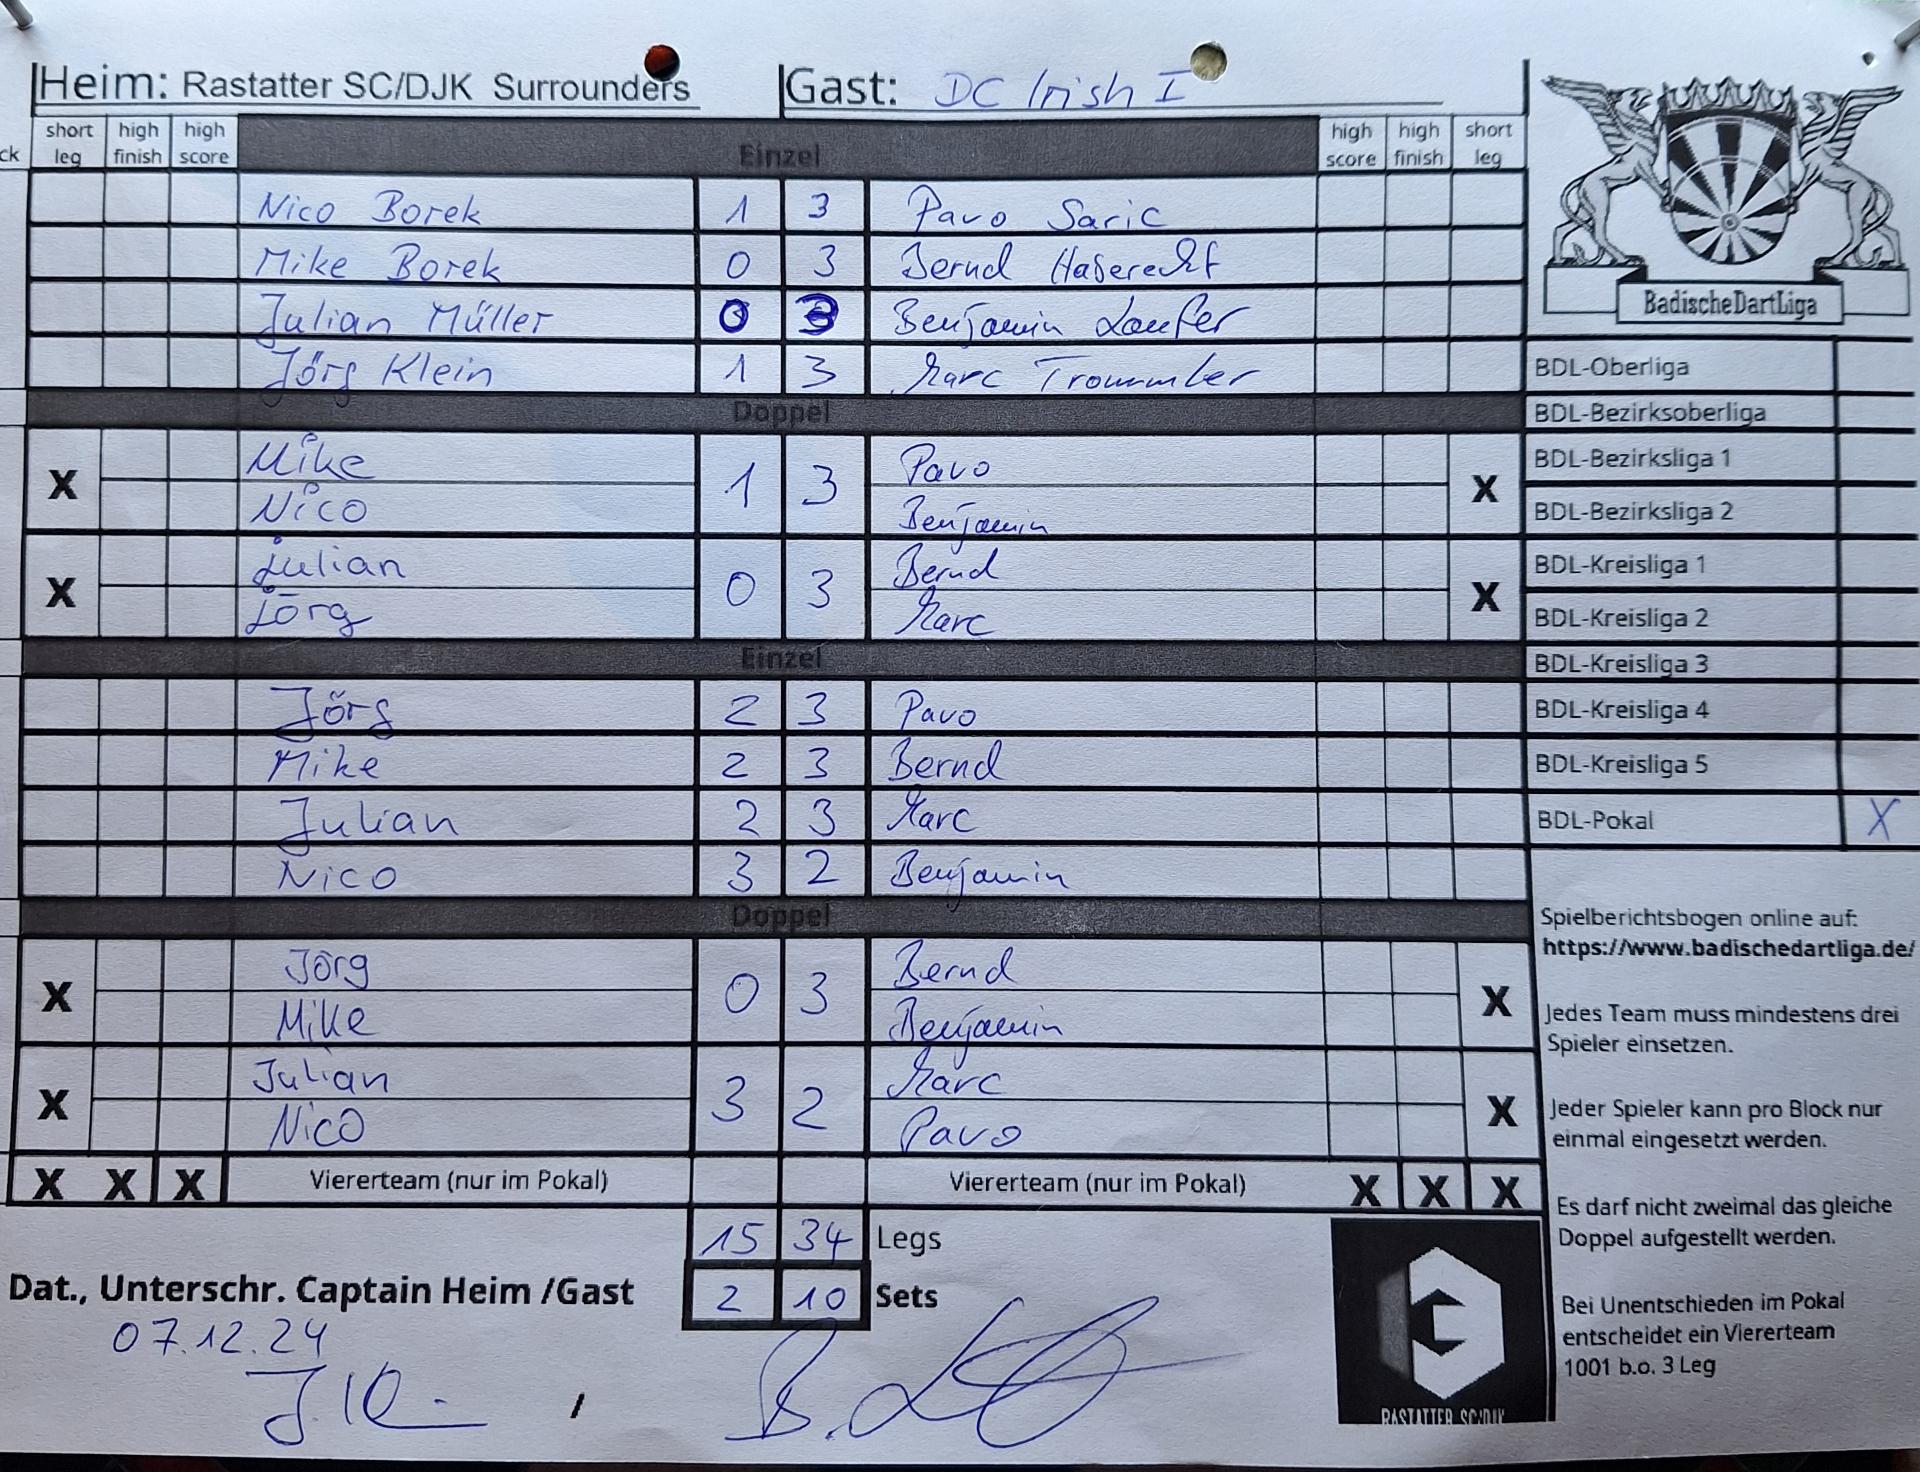 Heim: Rastatter SC/DJK Surrounders Gast: DC Irish I
ck short leg high finish high score Einzel high score high finish short leg
Nico Borek 1 3 Pavo Saric
Mike Borek 0 3 Bernd Haserecht
Julian Müller 0 3 Benjamin Laufer
Jörg Klein 1 3 Marc Trommler
Doppel
X Mike 1 3 Pavo X
Nico Benjamin
X Julian 0 3 Bernd X
Jörg Marc
Einzel
Jörg 2 3 Pavo
Mike 2 3 Bernd
Julian 2 3 Marc
Nico 3 2 Benjamin
Doppel
X Jörg 0 3 Bernd X
Mike Benjamin
X Julian 3 2 Marc X
Nico Pavo
X X X Viererteam (nur im Pokal) Viererteam (nur im Pokal) X X X
15 34 Legs
2 10 Sets
Dat., Unterschr. Captain Heim /Gast
07.12.24
/
BadischeDartLiga
BDL-Oberliga
BDL-Bezirksoberliga
BDL-Bezirksliga 1
BDL-Bezirksliga 2
BDL-Kreisliga 1
BDL-Kreisliga 2
BDL-Kreisliga 3
BDL-Kreisliga 4
BDL-Kreisliga 5
BDL-Pokal X
Spielberichtsbogen online auf:
https://www.badischedartliga.de/
Jedes Team muss mindestens drei
Spieler einsetzen.
Jeder Spieler kann pro Block nur
einmal eingesetzt werden.
Es darf nicht zweimal das gleiche
Doppel aufgestellt werden.
Bei Unentschieden im Pokal
entscheidet ein Viererteam
1001 b.o. 3 Leg
RASTATTER SC/DJK